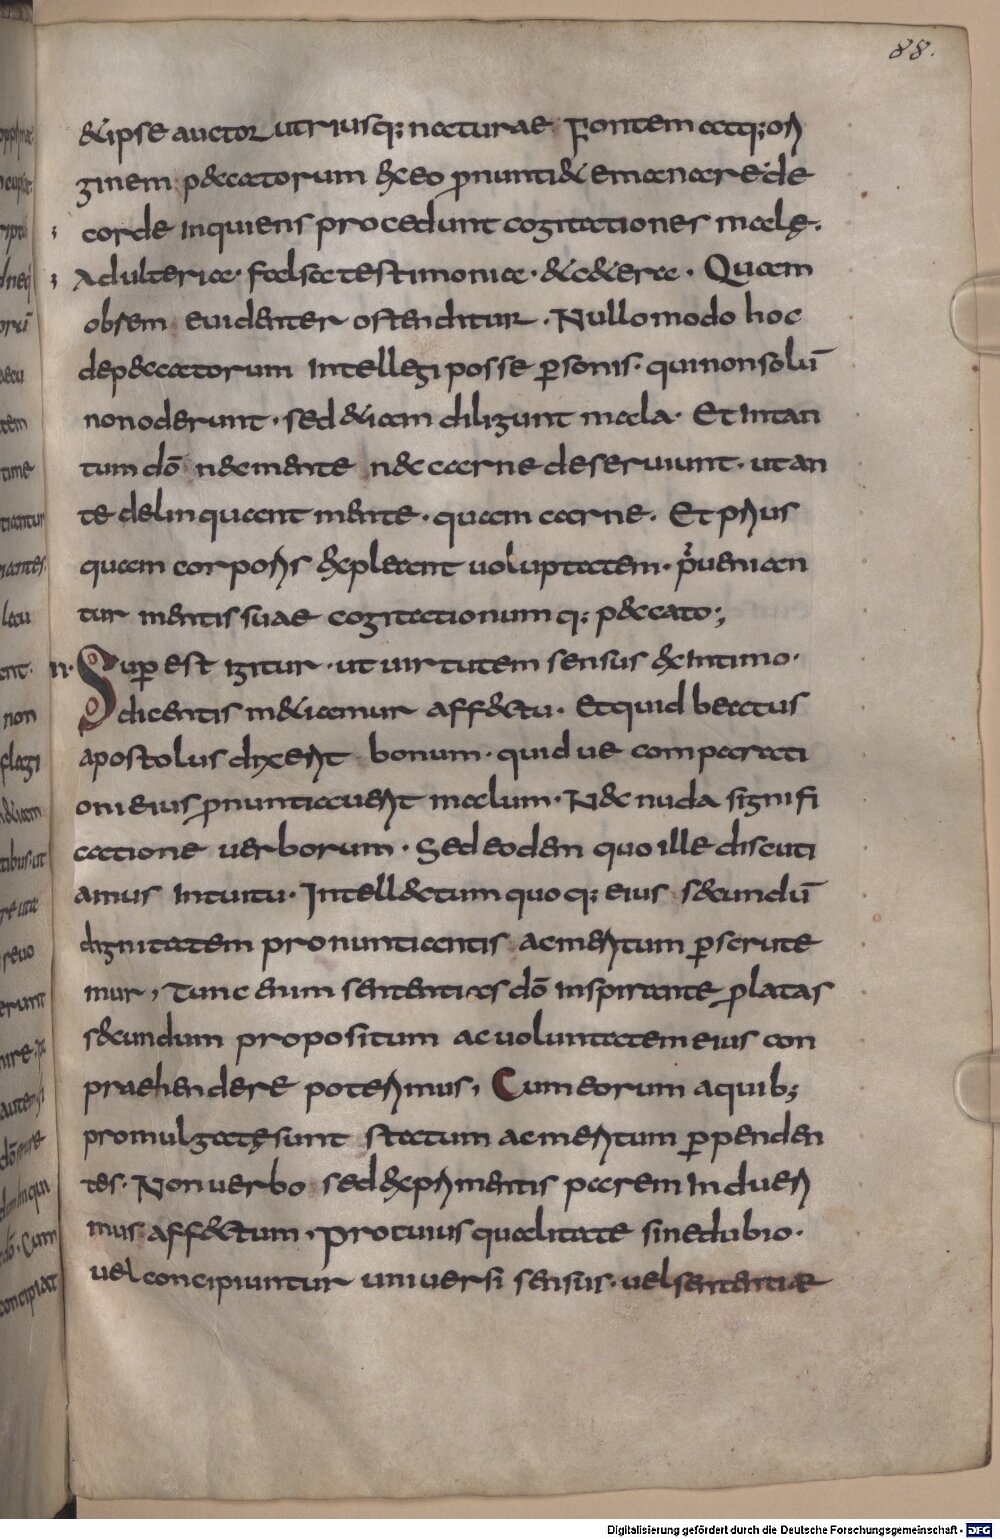 88.
&ipse auctor utriusq; naturae Fontem atq; ori
ginem peccatorum ex eo pronunti& emanare de
corde inquiens procedunt cogitationes malę.
Adulteria· falsa testimonia· & c&era· Quam
ob rem euidenter ostenditur· Nullo modo hoc
de peccatorum intellegi posse personis· qui non solū
non oderunt· sed &iam diligunt mala· Et in tan
tum dō nec mente nec carne deseruiunt· ut an
te delinquant mente· quam carne. Et prius
quam corporis expleant uoluptatem· p̄uenian
tur mentis suae cogitationumq; peccato;
II. Sup est igitur· ut uirtutem sensus ex intimo·
dicentis m&iamur affectu· Et quid beatus
apostolus dixerit bonum· quid ue comparati
oni eius pronuntiauerit malum· Nec nuda signifi
catione uerborum· Sed eodem quo ille discuti
amus intuitu· Intellectum quoq; eius secundū
dignitatem pronuntiantis ac meritum perscrute
mur, Tunc enim sententias dō inspirante prolatas
secundum propositum ac uoluntatem eius con
praehendere poterimus, Cum eorum a quib;
promulgatę sunt statum ac meritum perpenden
tes· Non uerbo sed experimentis parem indueri
mus affectum, Pro cuius qualitate sine dubio·
uel concipiuntur uniuersi sensus· uel sententiae
Digitalisierung gefördert durch die Deutsche Forschungsgemeinschaft - DFG